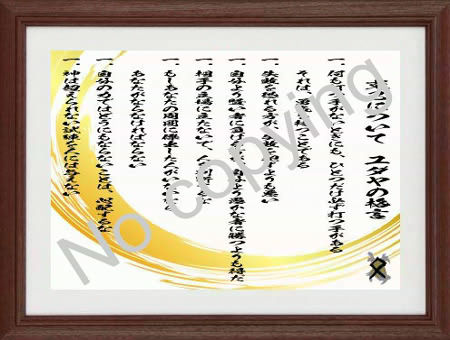 について ユダヤの格言
一、何も打つ手がないときにも、ひとつだけ必ず打つ手がある
それは、勇気を持つことである
一、失敗を恐れる方が、失敗を犯すよりも悪い
一、自分より賢い者に負けるほうが、自分より愚かな者に勝つよりも得だ
一、相手の立場に立たないで、人を判断するな
一、もしあなたの周囲に傑出した人がいないなら
あなたがならなければならない
一、自分の力ではどうにもならないことは、心配するな
一、神は超えられない試練を人には与えない
No copying